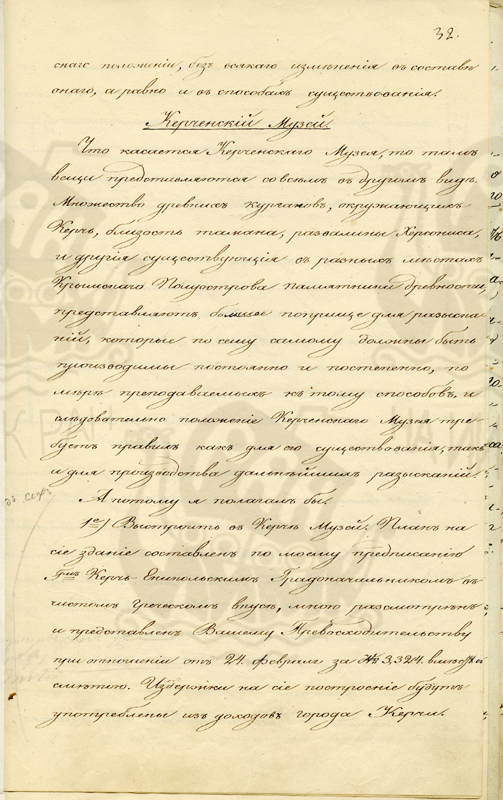 32.
снаго положенiи, безъ всякаго измѣненiя въ составѣ
онаго, а равно и въ способахъ существованiя.
Керченскiй Музей.
Что касается Керченскаго Музея, то тамъ
вещи представляются совсѣмъ въ другомъ видѣ.
Множество древнихъ кургановъ, окружающихъ
Керчь, близость Тамана, развалины Херсониса,
и другiя существующiя въ разныхъ мѣстахъ
Крымскаго Полуострова памятники древности,
представляютъ большее поприще для разыска-
нiй, которые по сему самому должны быть
производимы постоянно и постепенно, по
мѣрѣ преподаваемыхъ къ тому способовъ, и
слѣдовательно положенiе Керченскаго Музея тре-
буетъ правилъ какъ для его существованiя, такъ
и для производства дальнѣйшихъ разысканiй.
А потому я полагалъ бы.
1е) Выстроить въ Керчѣ Музей. Планъ на
сiе зданiе составленъ по моему предписанiю
Гмъ Керчь-Ениколь­скимъ Градоначальникомъ въ
чистомъ Греческомъ вкусѣ, мною разсмотрѣнъ
и представленъ Вашему Превосходительству
при отношенiи отъ 24 февраля за № 3,324. вмѣстѣ со
смѣтою. Издержки на сiе построенiе будутъ
употреблены изъ доходовъ города Керчи.